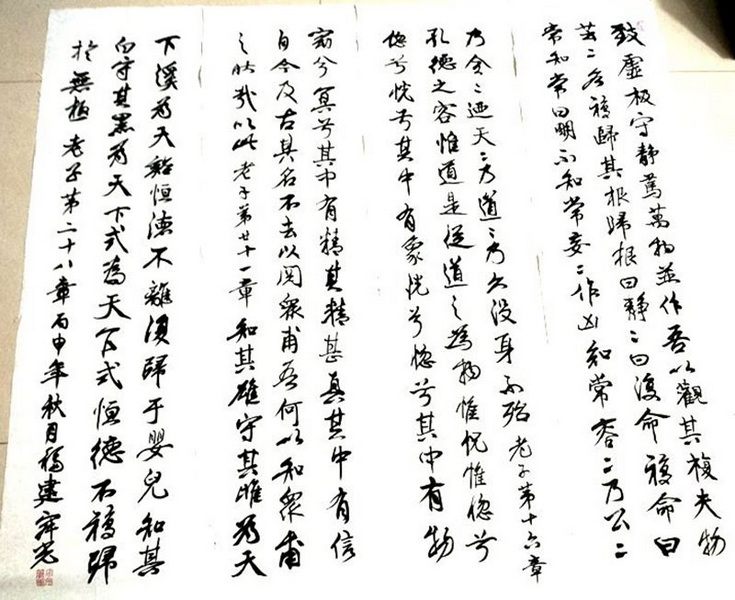 致虛极守静篤萬物並作吾以觀其複夫物
芸二各複歸其根歸根曰静二曰復命複命曰
常知常曰明不知常妄二作凶知常容二乃公二
乃全二迺天二乃道二乃久没身不殆老子第十六章
孔德之容惟道是從道之為物惟恍惟惚兮
惚兮恍兮其中有象恍兮惚兮其中有物
窈兮冥兮其中有精其精甚真其中有信
自今及古其名不去以閲衆甫吾何以知衆甫
之状哉以此老子第廿一章知其雄守其雌为天
下溪为天谿恒德不離復歸于嬰兒知其
白守其黑为天下式為天下式恒德不複歸
於無極老子第二十八章丙申年秋月福建